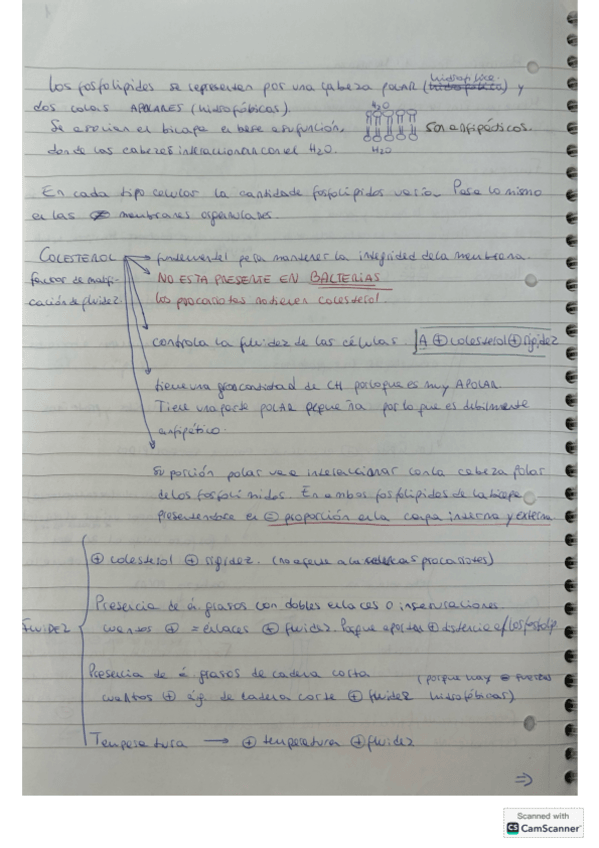 Los fosfolípidos se representan por una cabeza POLAR (hidrofílica) y
dos colas APOLARES (hidrofóbicas).
H₂O
Se asocian en bicapa en base a su función, son anfipáticos.
donde las cabezas interaccionan con el H₂O.
H₂O
En cada tipo celular la cantidad de fosfolípidos varía. Pasa lo mismo
en las membranas
COLESTEROL → fundamental para mantener la integridad de la membrana.
factor de modifi-
cación de fluidez
NO ESTA PRESENTE EN BACTERIAS
los procariotas no tienen colesterol
controla la fluidez de las células. A ⊕ colesterol ⊕ rigidez
tiene una gran cantidad de CH por lo que es muy APOLAR.
Tiene una parte POLAR pequeña por lo que es débilmente
anfipático.
Su porción polar va a interaccionar con la cabeza polar
de los En ambos fosfolípidos de la bicapa
presentandose en ⊜ proporción en la capa interna y externa
FLUIDEZ
⊕ colesterol ⊕ rigidez. (no a procariotas)
Presencia de á. grasos con dobles enlaces o insaturaciones.
cuantos ⊕ = enlaces ⊕ fluidez. Porque aportan ⊕ distancia e/ los fosfolip.
Presencia de á. grasos de cadena corta (porque hay ⊖ fuerzas
cuantos ⊕ á.g. de cadena corta ⊕ fluidez hidrofóbicas)
Temperatura → ⊕ temperatura ⊕ fluidez
⇒
Scanned with
CS CamScanner